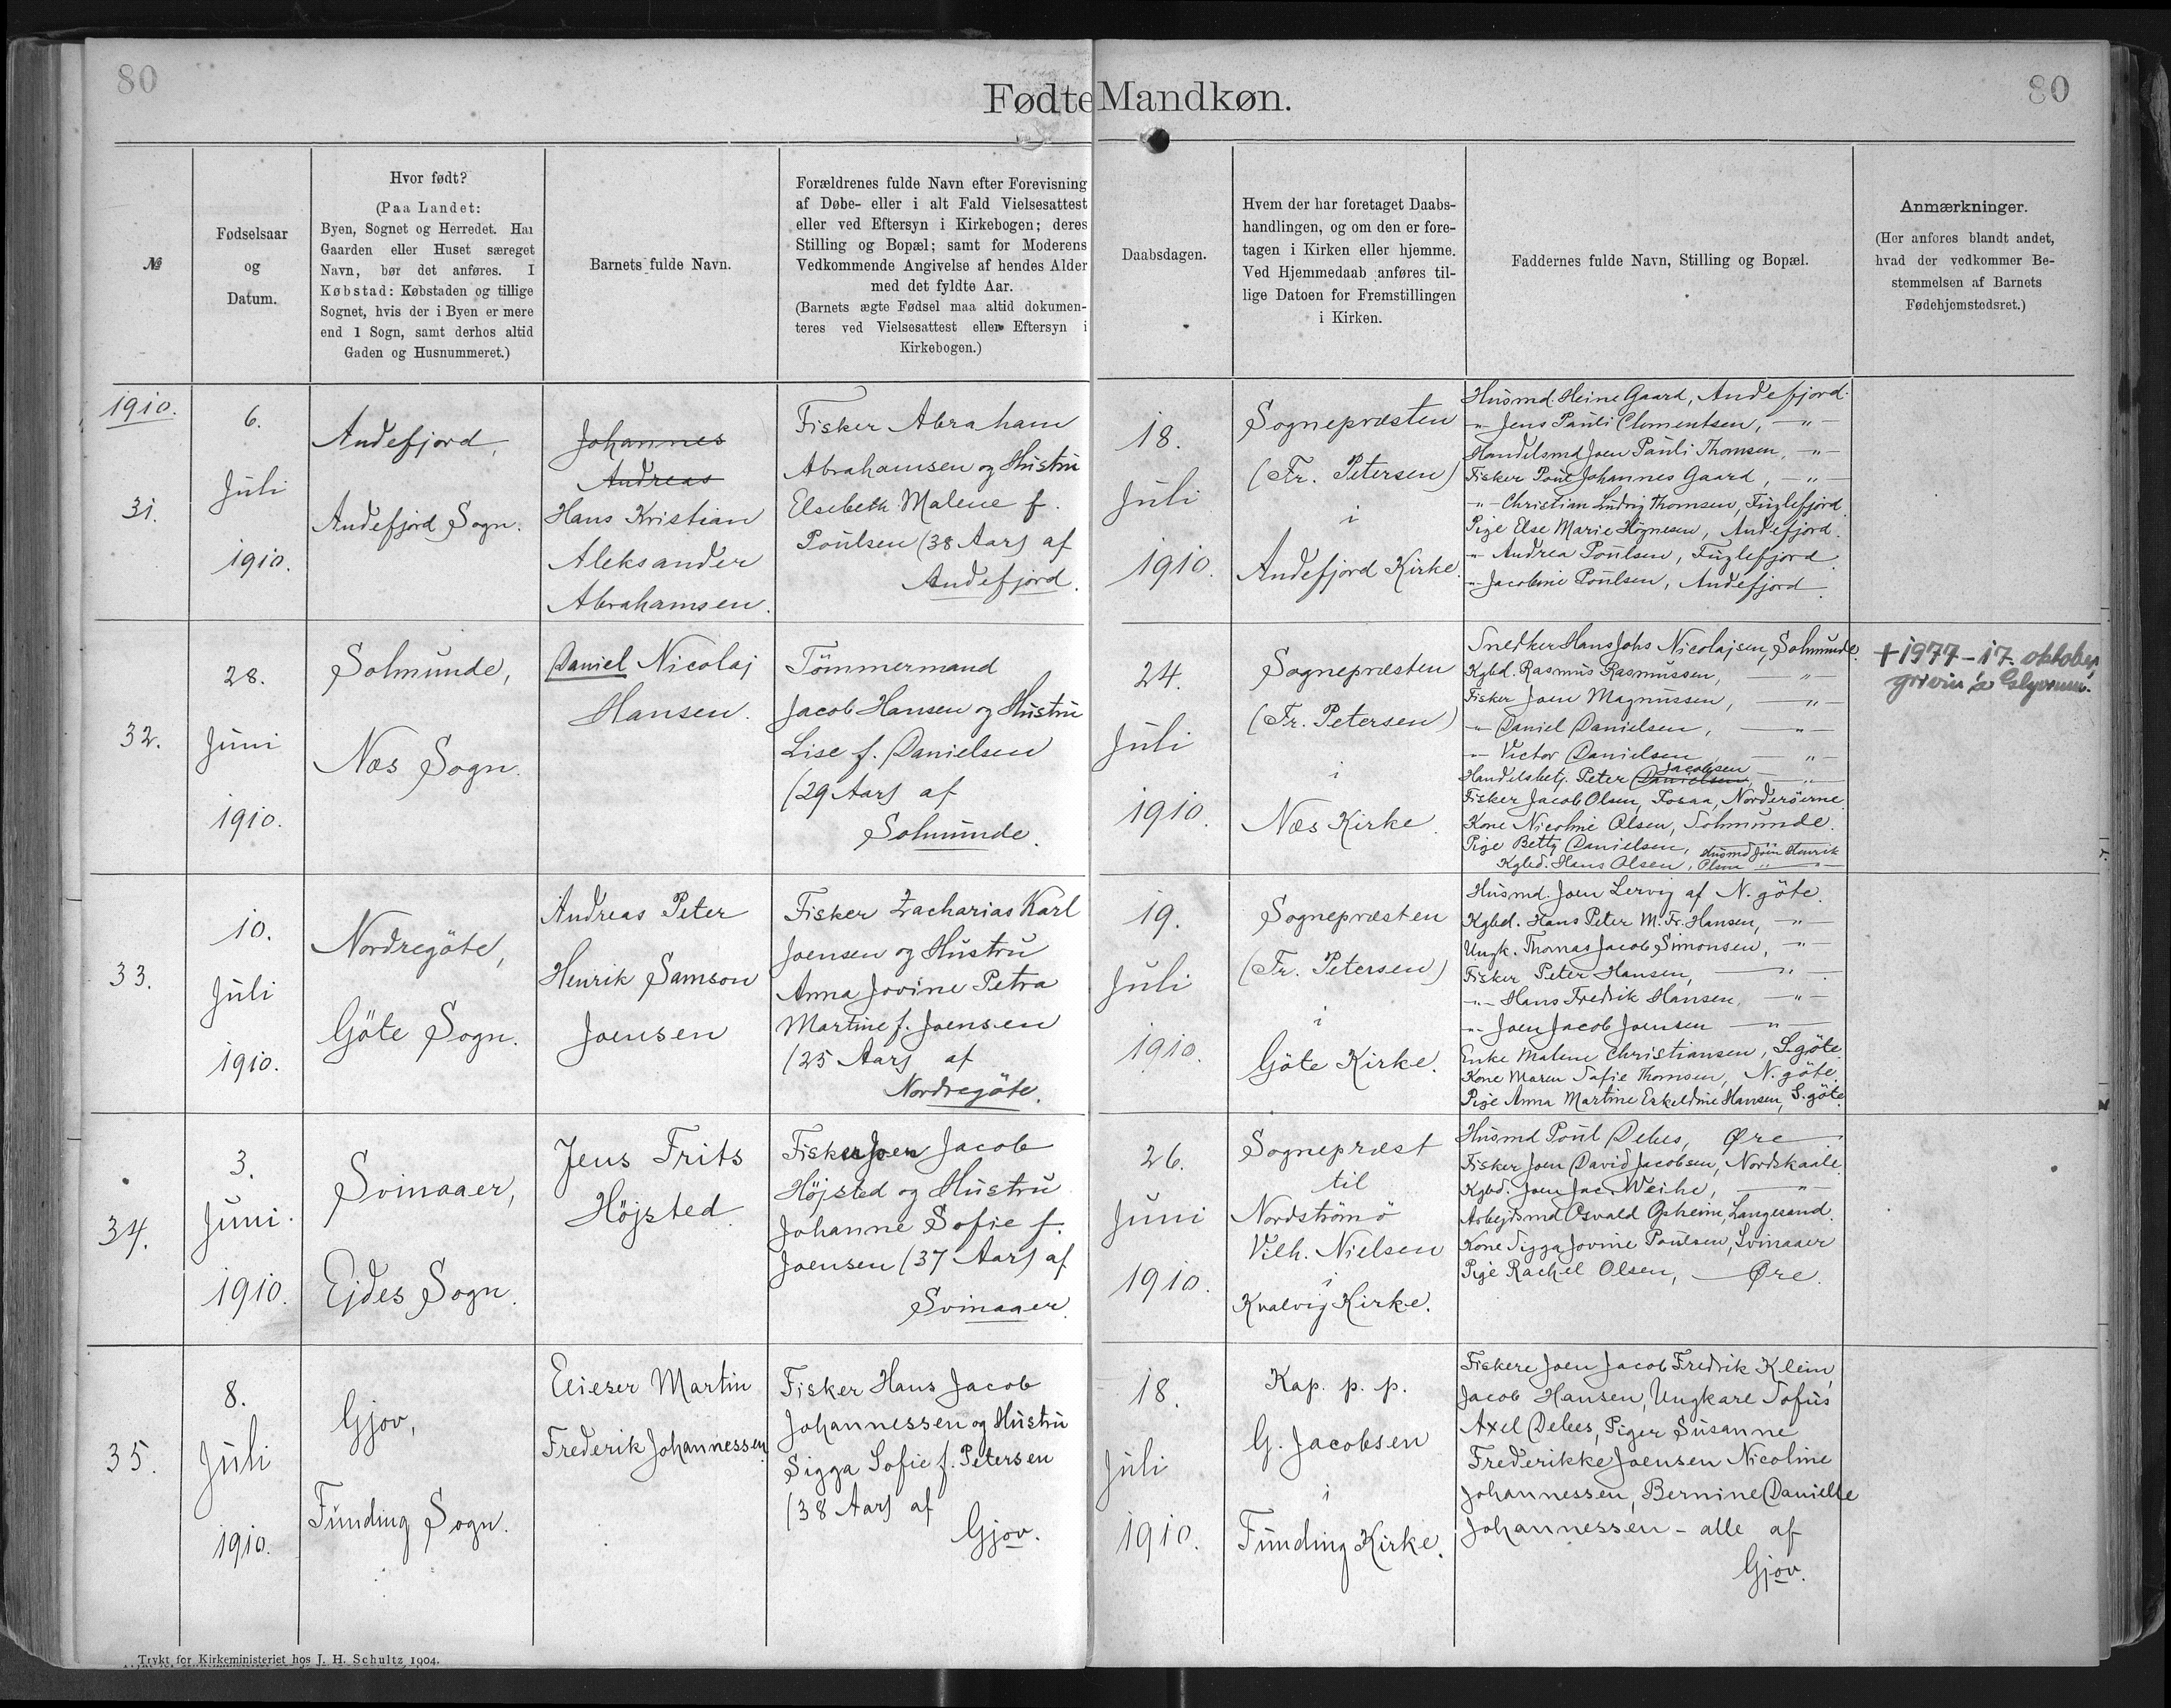 80
80
Fødte Mandkøn.
№
Fødselsaar
og
Datum.
Hvor født?
(Paa Landet:
Byen, Sognet og Herredet. Har
Gaarden eller Huset særeget
Navn, bør det anføres. I
Købstad: Købstaden og tillige
Sognet, hvis der i Byen er mere
end 1 Sogn, samt derhos altid
Gaden og Husnummeret.)
Barnets fulde Navn.
Forældrenes fulde Navn efter Forevisning
af Døbe- eller i alt Fald Vielsesattest
eller ved Eftersyn i Kirkebogen; deres
Stilling og Bopæl; samt for Moderens
Vedkommende Angivelse af hendes Alder
med det fyldte Aar.
(Barnets ægte Fødsel maa altid dokumen-
teres ved Vielsesattest eller Eftersyn i
Kirkebogen.)
Daabsdagen.
Hvem der har foretaget Daabs-
handlingen, og om den er fore-
tagen i Kirken eller hjemme.
Ved Hjemmedaab anføres til-
lige Datoen for Fremstillingen
i Kirken.
Faddernes fulde Navn, Stilling og Bopæl.
Anmærkninger.
(Her anføres blandt andet,
hvad der vedkommer Be-
stemmelsen af Barnets
Fødehjemstedsret.)
1910.
31.
6.
Juli
1910.
Andefjord,
Andefjord Sogn.
Johannes
Andreas
Hans Kristian
Aleksander
Abrahamsen.
Fisker Abraham
Abrahamsen og Hustru
Elsebeth Malene f.
Poulsen (38 Aar) af
Andefjord.
18.
Juli
1910.
Sognepræsten
(Fr. Petersen)
i
Andefjord Kirke.
Husmd Heine Gaard, Andefjord.
-"- Jens Pauli Clementsen, -"-
Handelsmd Joen Pauli Thomsen, -"-
Fisker Poul Johannes Gaard, -"-
-"- Christian Ludvig Thomsen, Fuglefjord
Pige Else Marie Högnesen, Andefjord.
-"- Andrea Poulsen, Fuglefjord
-"- Jacobine Poulsen, Andefjord.
32.
28.
Juni
1910.
Solmunde,
Næs Sogn.
Daniel Nicolaj
Hansen.
Tömmermand
Jacob Hansen og Hustru
Lise f. Danielsen
(29 Aar) af
Solmunde.
24.
Juli
1910.
Sognepræsten
(Fr. Petersen)
i
Næs Kirke.
Snedker Hans Johs Nicolajsen, Solmunde.
Kgbd. Rasmus Rasmussen, -"-
Fisker Joen Magnussen, -"-
-"- Daniel Danielsen, -"-
-"- Victor Danielsen -"-
Jacobsen
Handelsbetj. Peter Danielsen, -"-
Fisker Jacob Olsen, Fosaa, Norderöerne.
Kone Nicoline Olsen, Solmunde.
Pige Betty Danielsen, Husmd Joen Henrik
Kgbd. Hans Olsen, Olsen -"-
+1977 - 17. oktober
grivin á Glyvrum.
33.
10.
Juli
1910.
Nordregöte,
Göte Sogn.
Andreas Peter
Henrik Samson
Joensen
Fisker Zacharias Karl
Joensen og Hustru
Anna Jovine Petra
Martine f. Joensen
(25 Aar) af
Nordregöte.
19.
Juli
1910.
Sognepræsten
(Fr. Petersen)
i
Göte Kirke.
Husmd. Joen Lervig af N. göte.
Kgbd. Hans Peter M. Fr. Hansen, -"-
Ungk. Thomas Jacob Simonsen, -"-
Fisker Peter Hansen, -"-
-"- Hans Fredrik Hansen, -"-
-"- Joen Jacob Joensen -"-
Enke Malene Christiansen, S. göte.
Kone Maren Sofie Thomsen, N. göte.
Pige Anna Martine Eskeldine Hansen, S. göte
34.
3.
Juni.
1910.
Svinaaer,
Ejdes Sogn.
Jens Frits
Höjsted.
Fisker Joen Jacob
Höjsted og Hustru
Johanne Sofie f.
Joensen (37 Aar) af
Svinaaer.
26.
Juni
1910.
Sognepræst
til
Nordströmö
Vilh. Nielsen
i
Kvalvig Kirke.
Husmd Poul Debes, Øre
Fisker Joen David Jacobsen, Nordskaale.
Kgbd. Joen Jac. Weihe, -"-
Arbejdsmd Osvald Opheim, Langesand.
Kone Sigga Jovine Poulsen, Svinaaer
Pige Rachel Olsen, Øre.
35.
8.
Juli
1910.
Gjov,
Funding Sogn.
Elieser Martin
Frederik Johannessen
Fisker Hans Jacob
Johannessen og Hustru
Sigga Sofie f. Petersen
(38 Aar) af
Gjov.
18.
Juli
1910.
Kap. p. p.
G. Jacobsen
i
Funding Kirke.
Fiskere Joen Jacob Fredrik Klein,
Jacob Hansen, Ungkarl Sofus
Axel Debes, Piger Susanne
Frederikke Joensen Nicoline
Johannessen, Bernine Danielle
Johannessen - alle af
Gjov.
Trykt for Kirkeministeriet hos J. H. Schultz 1904.